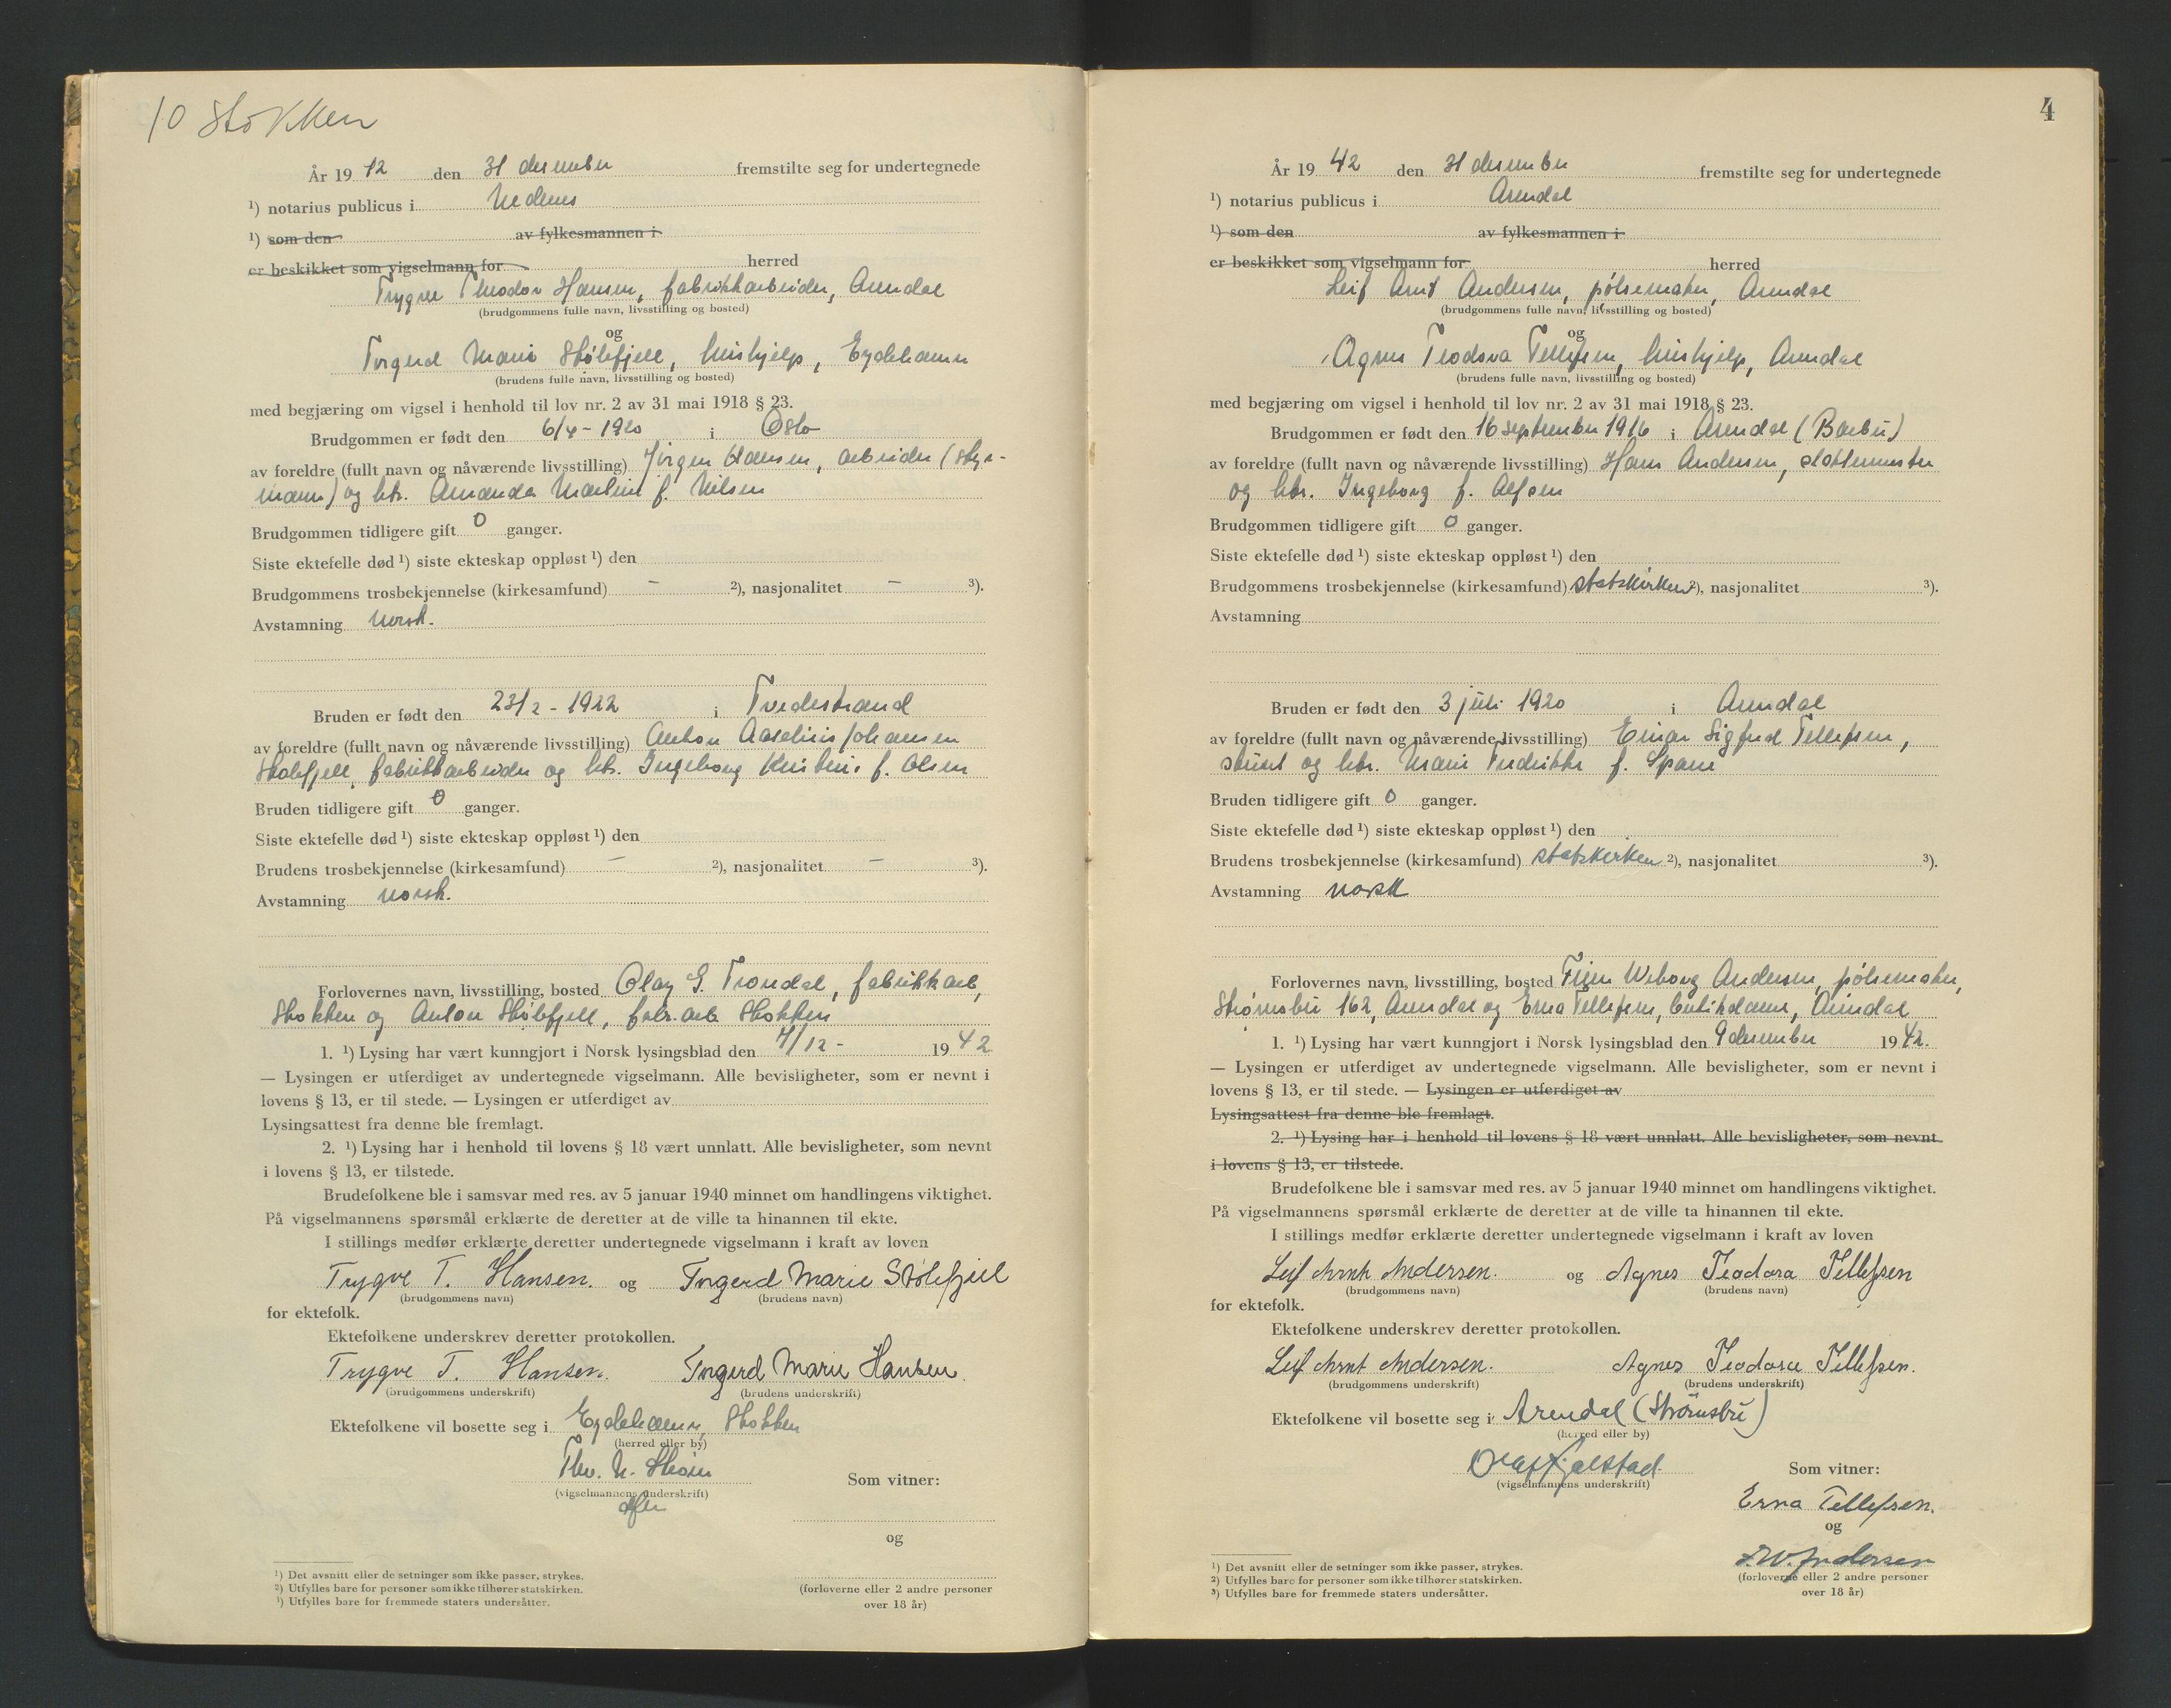 10 Stokken
År 1942 den 31 desember fremstilte seg for undertegnede
¹) notarius publicus i Nedenes
¹) som den av fylkesmannen i
er beskikket som vigselmann for herred
Trygve Theodor Hansen, fabrikkarbeider, Arendal
(brudgommens fulle navn, livsstilling og bosted)
og
Torgerd Marie Stølefjell, hushjelp, Eydehavn
(brudens fulle navn, livsstilling og bosted)
med begjæring om vigsel i henhold til lov nr. 2 av 31 mai 1918 § 23.
Brudgommen er født den 6/4 - 1920 i Oslo
av foreldre (fullt navn og nåværende livsstilling) Jörgen Hansen, arbeider (styr-
mann) og htr. Amanda f. Nilsen
Brudgommen tidligere gift 0 ganger.
Siste ektefelle død ¹) siste ekteskap oppløst ¹) den
Brudgommens trosbekjennelse (kirkesamfund) – ²), nasjonalitet – ³).
Avstamning norsk.
Bruden er født den 23/2 - 1922 i Tvedestrand
av foreldre (fullt navn og nåværende livsstilling) Anton Johansen
Stølefjell, fabrikkarbeider og htr. Ingeborg f. Olsen
Bruden tidligere gift 0 ganger.
Siste ektefelle død ¹) siste ekteskap oppløst ¹) den
Brudens trosbekjennelse (kirkesamfund) – ²), nasjonalitet – ³).
Avstamning norsk.
Forlovernes navn, livsstilling, bosted Olav G. Trondal, fabrikkarb,
Stokken og Anton Stølefjell, fabr.arb Stokken
1. ¹) Lysing har vært kunngjort i Norsk lysingsblad den /12 - 1942
— Lysingen er utferdiget av undertegnede vigselmann. Alle bevisligheter, som er nevnt i
lovens § 13, er til stede. — Lysingen er utferdiget av
Lysingsattest fra denne ble fremlagt.
2. ¹) Lysing har i henhold til lovens § 18 vært unnlatt. Alle bevisligheter, som nevnt
i lovens § 13, er tilstede.
Brudefolkene ble i samsvar med res. av 5 januar 1940 minnet om handlingens viktighet.
På vigselmannens spørsmål erklærte de deretter at de ville ta hinannen til ekte.
I stillings medfør erklærte deretter undertegnede vigselmann i kraft av loven
Trygve T. Hansen. og Torgerd Marie Stölefjell
(brudgommens navn) (brudens navn)
for ektefolk.
Ektefolkene underskrev deretter protokollen.
Trygve T. Hansen. Torgerd Marie Hansen.
(brudgommens underskrift) (brudens underskrift)
Ektefolkene vil bosette seg i Eydehavn, Stokken
(herred eller by)
Som vitner:
(vigselmannens underskrift)
og
¹) Det avsnitt eller de setninger som ikke passer, strykes.
²) Utfylles bare for personer som ikke tilhører statskirken.
³) Utfylles bare for fremmede staters undersåtter.
(forloverne eller 2 andre personer
over 18 år)
4
År 1942 den 31 desember fremstilte seg for undertegnede
¹) notarius publicus i Arendal
¹) som den av fylkesmannen i
er beskikket som vigselmann for herred
Leif Arnt Andersen, pölsemaker, Arendal
(brudgommens fulle navn, livsstilling og bosted)
og
Agnes Teodora Tellefsen, hushjelp, Arendal
(brudens fulle navn, livsstilling og bosted)
med begjæring om vigsel i henhold til lov nr. 2 av 31 mai 1918 § 23.
Brudgommen er født den 16 september 1916 i Arendal (Barbu)
av foreldre (fullt navn og nåværende livsstilling) Hans Andersen, slaktermester
og htr. Ingeborg f. Alfsen
Brudgommen tidligere gift 0 ganger.
Siste ektefelle død ¹) siste ekteskap oppløst ¹) den
Brudgommens trosbekjennelse (kirkesamfund) statskirken ²), nasjonalitet ³).
Avstamning
Bruden er født den 3 juli 1920 i Arendal
av foreldre (fullt navn og nåværende livsstilling) Einar Sigfred Tellefsen,
stuert og htr. Marie Fredrikke f. Spane
Bruden tidligere gift 0 ganger.
Siste ektefelle død ¹) siste ekteskap oppløst ¹) den
Brudens trosbekjennelse (kirkesamfund) statskirken ²), nasjonalitet ³).
Avstamning norsk
Forlovernes navn, livsstilling, bosted Finn Weborg Andersen, pölsemaker,
Strømsbu 162, Arendal og Erna Tellefsen, butikdame, Arendal
1. ¹) Lysing har vært kunngjort i Norsk lysingsblad den 9 desember 1942.
— Lysingen er utferdiget av undertegnede vigselmann. Alle bevisligheter, som er nevnt i
lovens § 13, er til stede. — Lysingen er utferdiget av
Lysingsattest fra denne ble fremlagt.
2. ¹) Lysing har i henhold til lovens § 18 vært unnlatt. Alle bevisligheter, som nevnt
i lovens § 13, er tilstede.
Brudefolkene ble i samsvar med res. av 5 januar 1940 minnet om handlingens viktighet.
På vigselmannens spørsmål erklærte de deretter at de ville ta hinannen til ekte.
I stillings medfør erklærte deretter undertegnede vigselmann i kraft av loven
Leif Arnt Andersen. og Agnes Teodora Tellefsen
(brudgommens navn) (brudens navn)
for ektefolk.
Ektefolkene underskrev deretter protokollen.
Leif Arnt Andersen. Agnes Teodora Tellefsen.
(brudgommens underskrift) (brudens underskrift)
Ektefolkene vil bosette seg i Arendal (Strömsbu)
(herred eller by)
Som vitner:
(vigselmannens underskrift)
Erna Tellefsen.
og
F.W. Andersen
¹) Det avsnitt eller de setninger som ikke passer, strykes.
²) Utfylles bare for personer som ikke tilhører statskirken.
³) Utfylles bare for fremmede staters undersåtter.
(forloverne eller 2 andre personer
over 18 år)